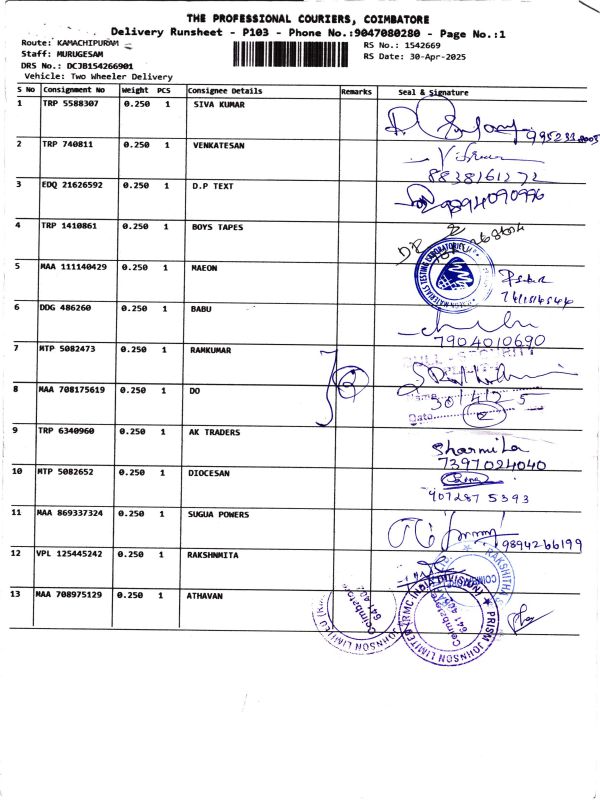 THE PROFESSIONAL COURIERS, COIMBATORE
Delivery Runsheet - P103 - Phone No.:9047080280 - Page No.:1
Route: KAMACHIPURAM
RS No.: 1542669
Staff: MURUGESAM
RS Date: 30-Apr-2025
DRS No.: DCJB154266901
Vehicle: Two Wheeler Delivery
S No Consignment No Weight PCS Consignee Details Remarks Seal & Signature
1 TRP 5588307 0.250 1 SIVA KUMAR
2 TRP 740811 0.250 1 VENKATESAN
8838161272
3 EDQ 21626592 0.250 1 D.P TEXT
9894090996
4 TRP 1410861 0.250 1 BOYS TAPES
5 MAA 111140429 0.250 1 MAEON
6 DDG 486260 0.250 1 BABU
7904010690
7 MTP 5082473 0.250 1 RAMKUMAR
8 MAA 708175619 0.250 1 DO
Name
30/4/25
Date
9 TRP 6340960 0.250 1 AK TRADERS
Sharmila
7397024040
10 MTP 5082652 0.250 1 DIOCESAN
907287 5393
11 MAA 869337324 0.250 1 SUGUA POWERS
9894266199
12 VPL 125445242 0.250 1 RAKSHNMITA
RAKSHITHA
13 MAA 708975129 0.250 1 ATHAVAN
Coimbatore
PRISM JOHNSON LIMITED (RMC INDIA DIVISION)
Coimbatore